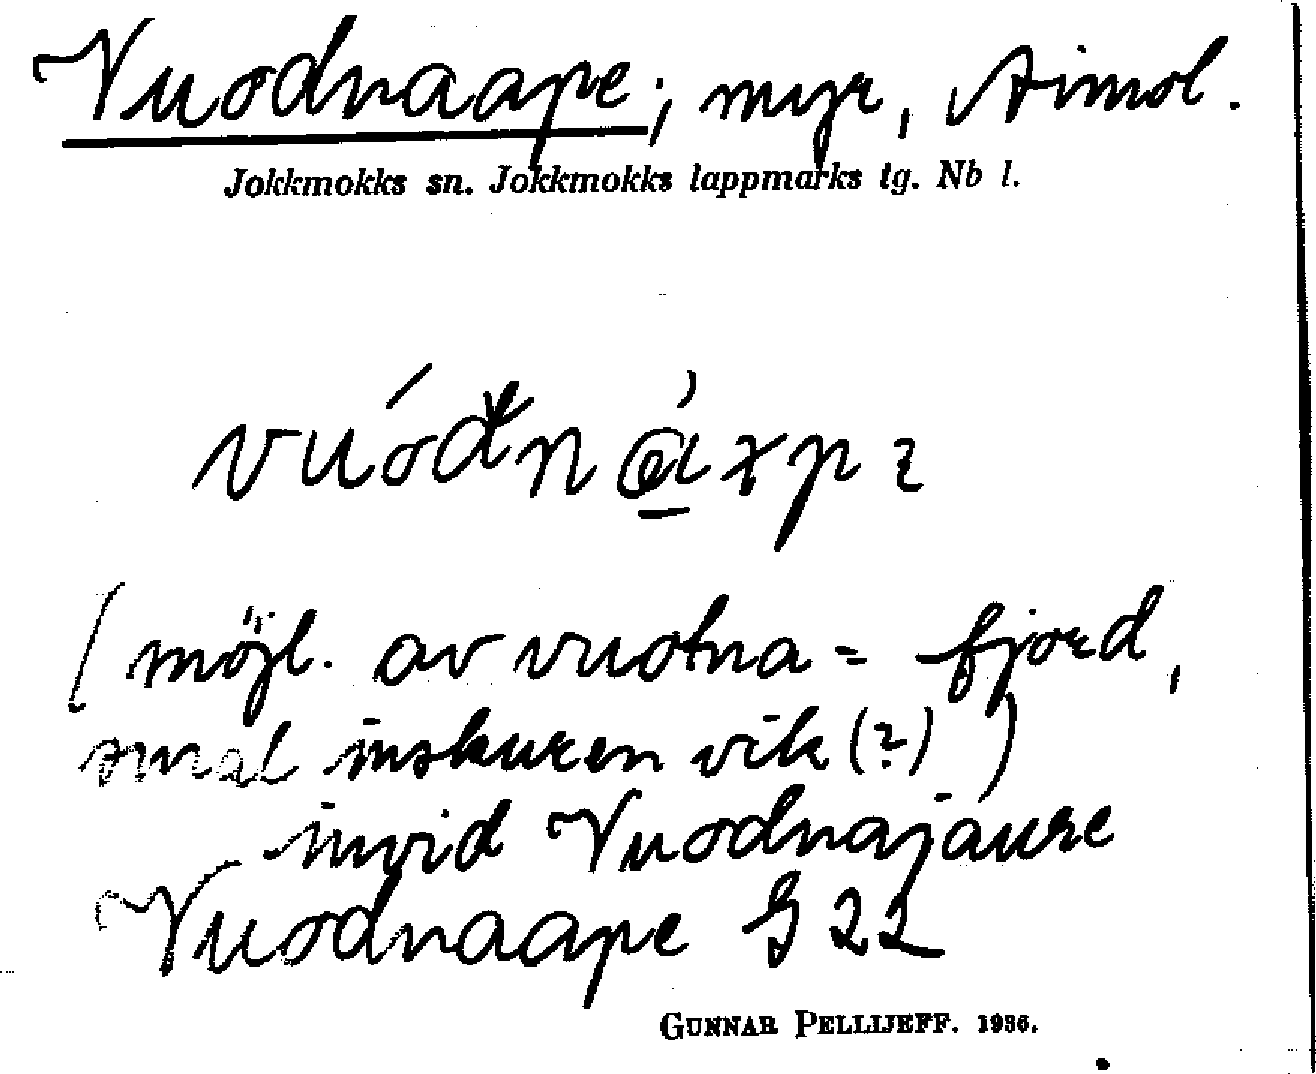 Vuodnaape; myr, Aimol.
Jokkmokks sn. Jokkmokks lappmarks tg. Nb l.
(möjl. av vuotna = fjord,
smal inskuren vik (?) )
invid Vuodnajaure
Vuodnaape G 22
GUNNAR PELLIJEFF. 1936.